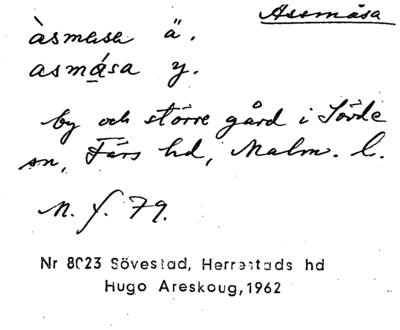 Assmåsa
àsmasa ä.
asmása y.
by och större gård i Sövde
sn, Färs hd, Malm. l.
M. f. 79.
Nr 8023 Sövestad, Herrestads hd
Hugo Areskoug, 1962